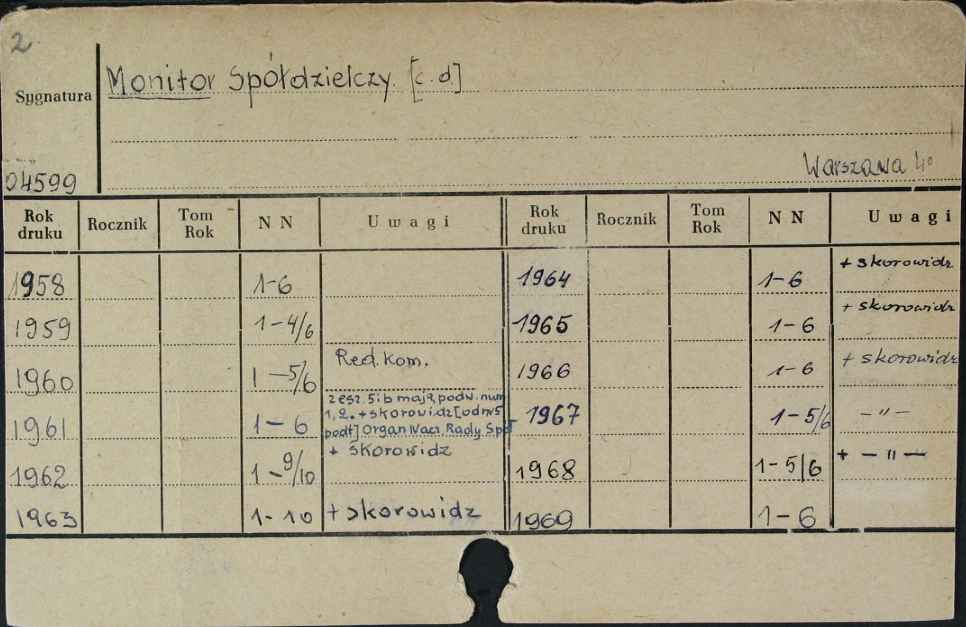 2
Monitor Spółdzielczy. [c.d.]
Sygnatura
Warszawa 4°
04599
Rok druku Rocznik Tom Rok N N Uwagi Rok druku Rocznik Tom Rok N N Uwagi
1958 1-6
1959 1-4/6
1960 1-5/6 Red. kom.
1961 1-6 zesz. 5 i 6 mają podw. num.
1, 2. + skorowidz [od nr 5
podt] Organ Nacz. Rady Spół
1962 1-9/10 + skorowidz
1963 1-10 + skorowidz
1964 1-6 + skorowidz
1965 1-6 + skorowidz
1966 1-6 + skorowidz
1967 1-5/6 -"-
1968 1-5/6 + -"-
1969 1-6